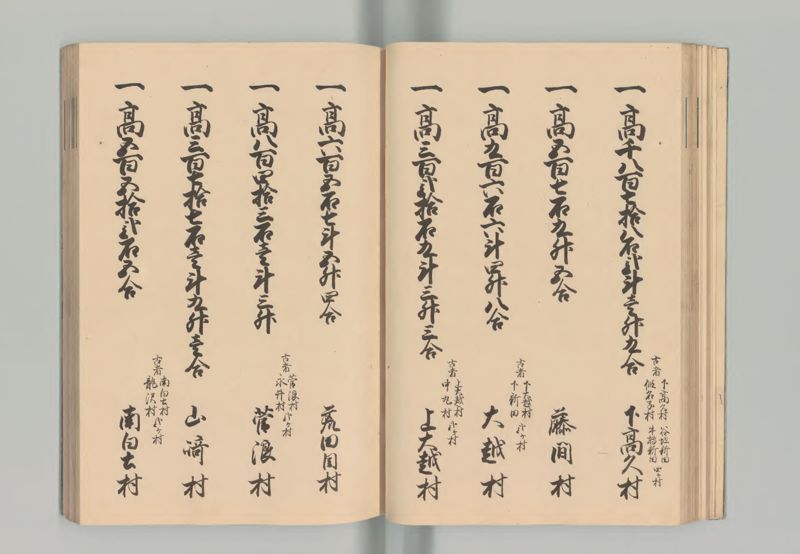 一高千八百七拾八石弐斗壱升九合
古者 下高久村 谷地新田
仮名子村 牛椿新田 四ヶ村
下高久村
一高五百七石九升五合
藤間村
一高九百六石六斗四升八合
古者 下大越村
下新田 弐ヶ村
大越村
一高三百弐拾石九斗三升三合
古者 上大越村
中丸村 弐ヶ村
上大越村
一高六百五石七斗五升四合
荒田目村
一高八百四拾三石壱斗三升
古者 菅浪村
永井村 弐ヶ村
菅浪村
一高三百七拾七石壱斗九升壱合
山崎村
一高五百五拾弐石五合
古者 南白土村
龍沢村 弐ヶ村
南白土村